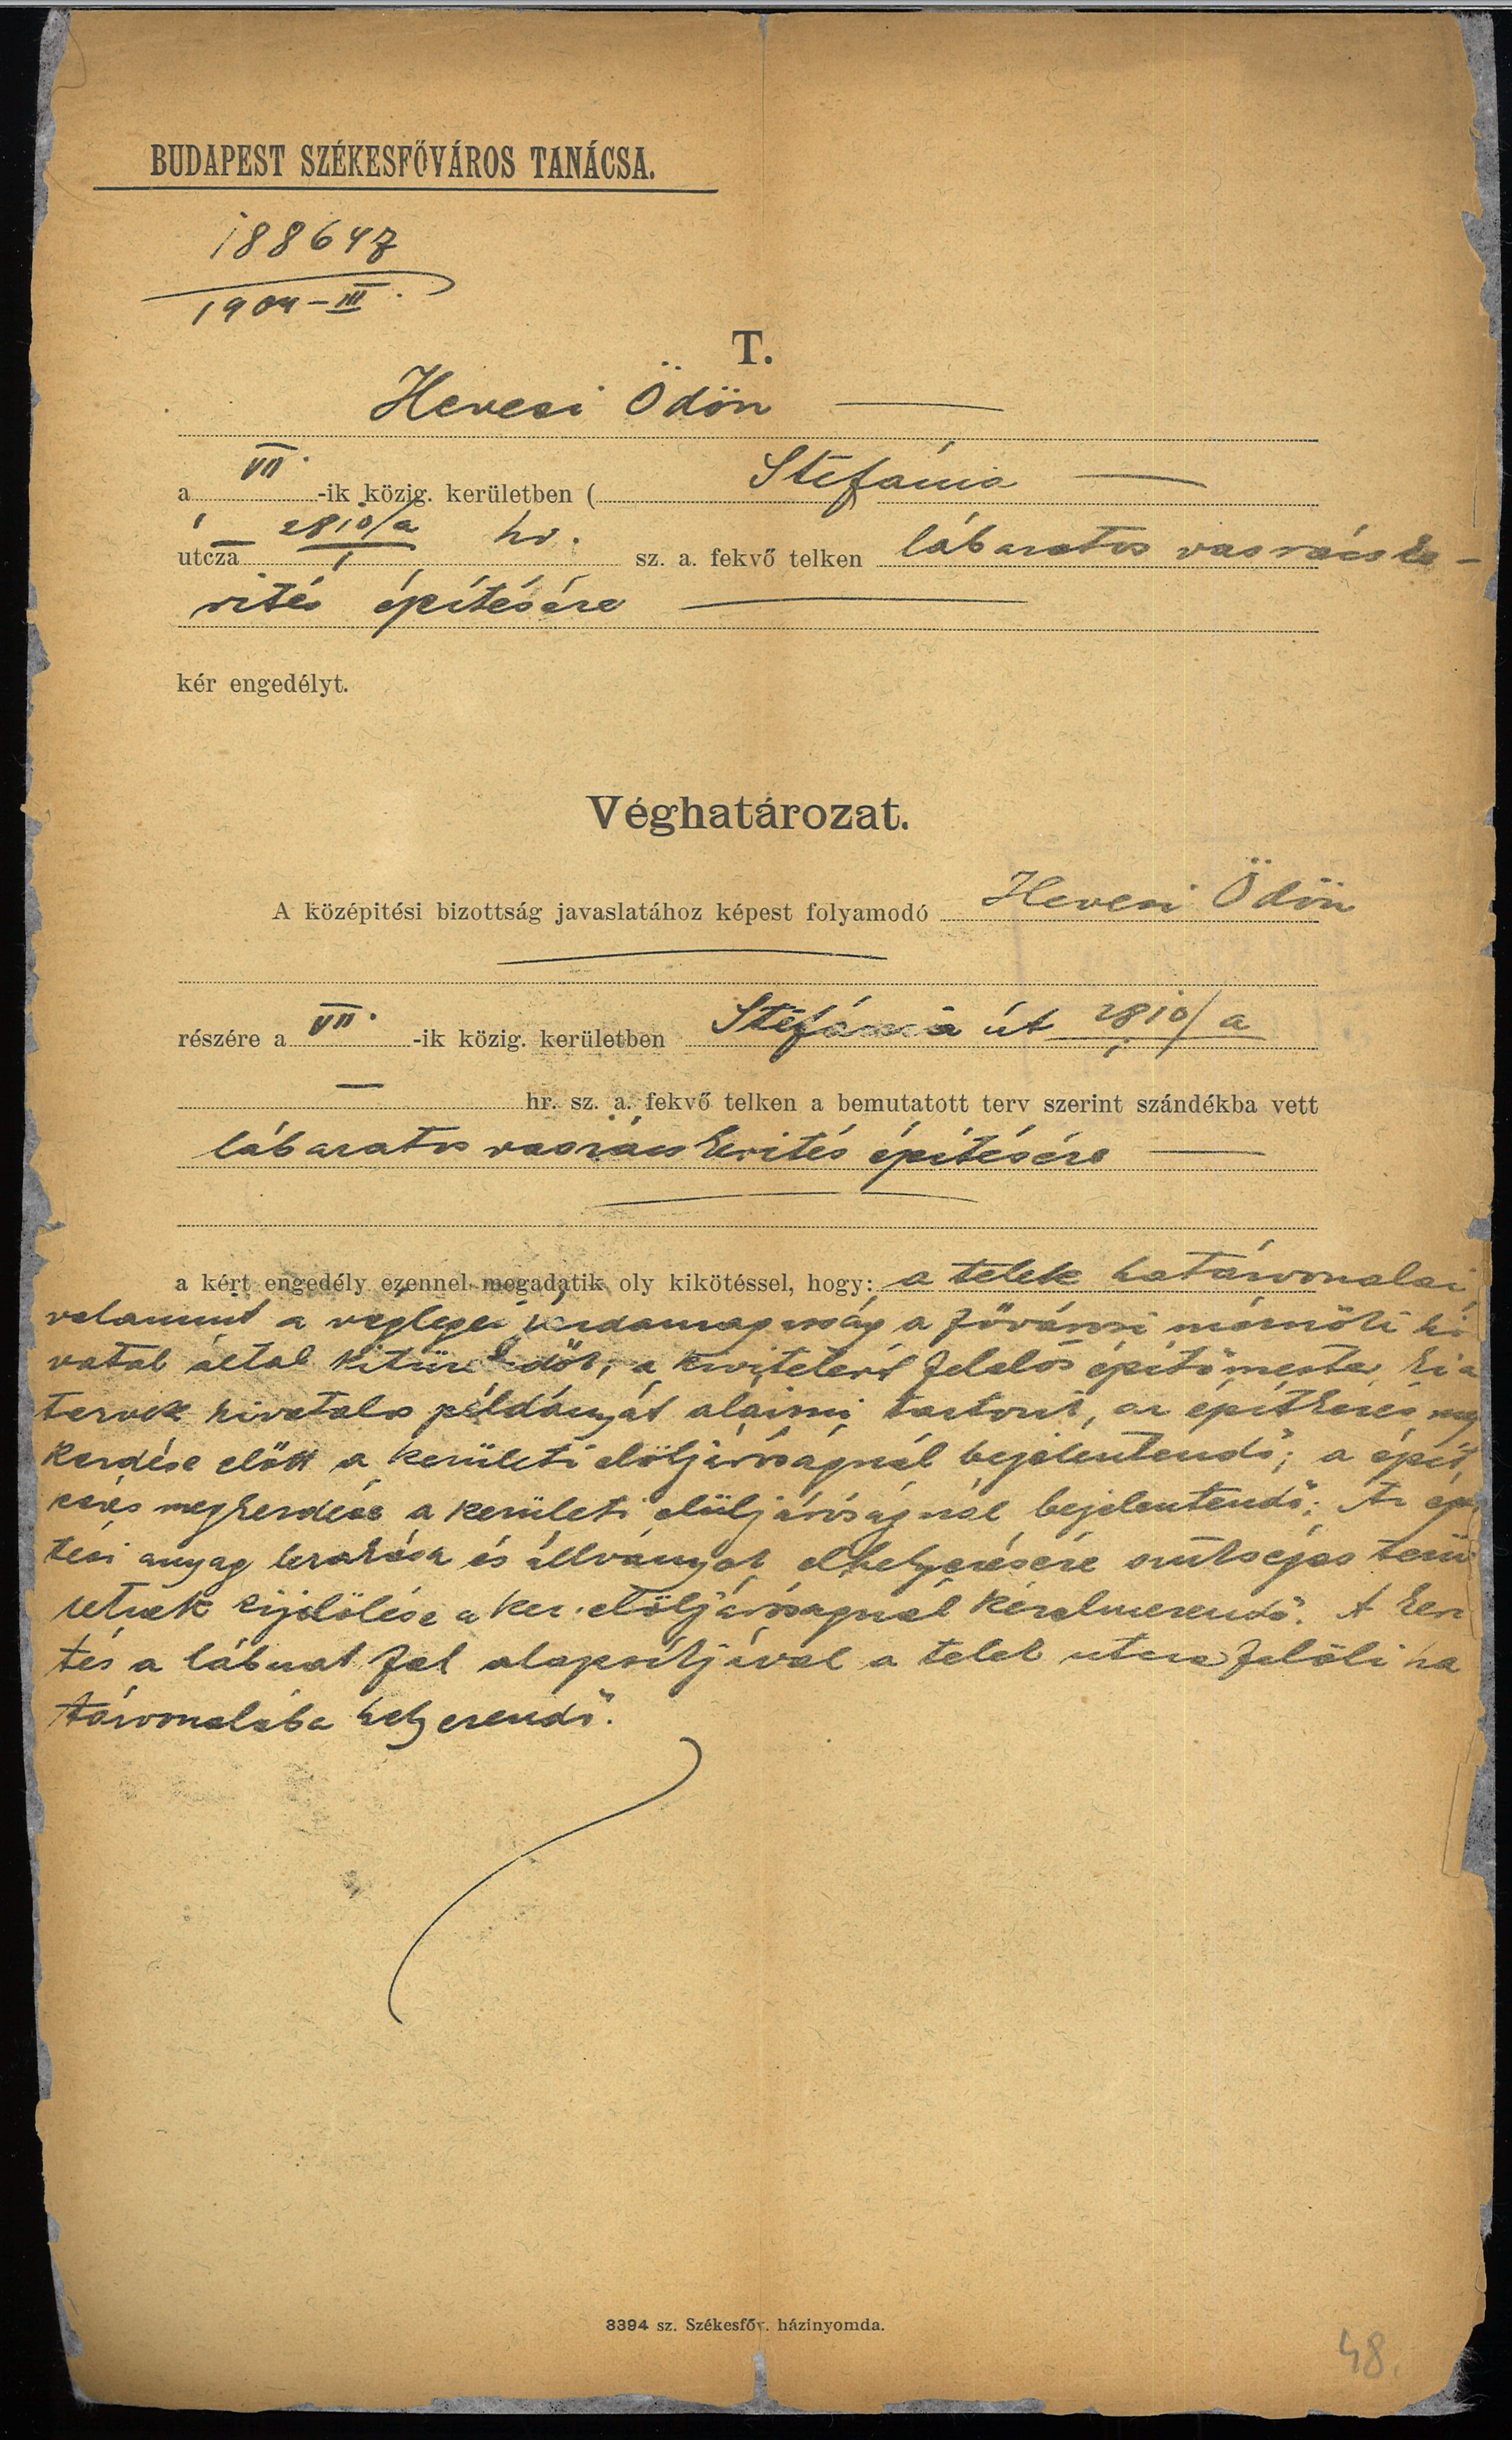 BUDAPEST SZÉKESFŐVÁROS TANÁCSA.
188647
1904-III.
T.
Hevesi Ödön
a VII. -ik közig. kerületben ( Stefánia
utcza 2810/a hr. sz. a. fekvő telken lábazatos vasrács ke-
1
rítés építésére
kér engedélyt.
Véghatározat.
A középitési bizottság javaslatához képest folyamodó Hevesi Ödön
részére a VII. -ik közig. kerületben Stefánia út 2810/a
1
hr. sz. a. fekvő telken a bemutatott terv szerint szándékba vett
lábazatos vasrács kerités építésére
a kért engedély ezennel megadatik oly kikötéssel, hogy: a telek határvonalai
valamint a végleges járdamagasság a fővárosi mérnöki hi
vatal által kitüzendők, a kivitelért felelős építőmester ki a
tervek hivatalos példányát aláirni tartozik, az építkezés meg
kezdése előtt a kerületi elöljáróságnál bejelentendő; a épít
kezés megkezdése a kerületi elüljáróságnál bejelentendő; Az épi
tési anyag lerakása és állványok elhelyezésére szükséges terü
letnek kijelölése a ker. elöljáróságnál kérelmezendő. A keri
tés a lábazat fal alapsíkjával a telek utcza felöli ha
tárvonalába helyezendő.
3394 sz. Székesfőv. házinyomda.
48.